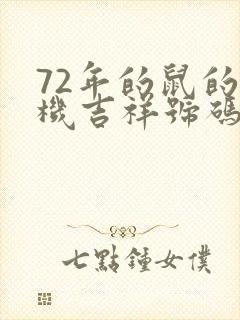 72年的鼠的
機吉祥號碼
七點鍾女僕